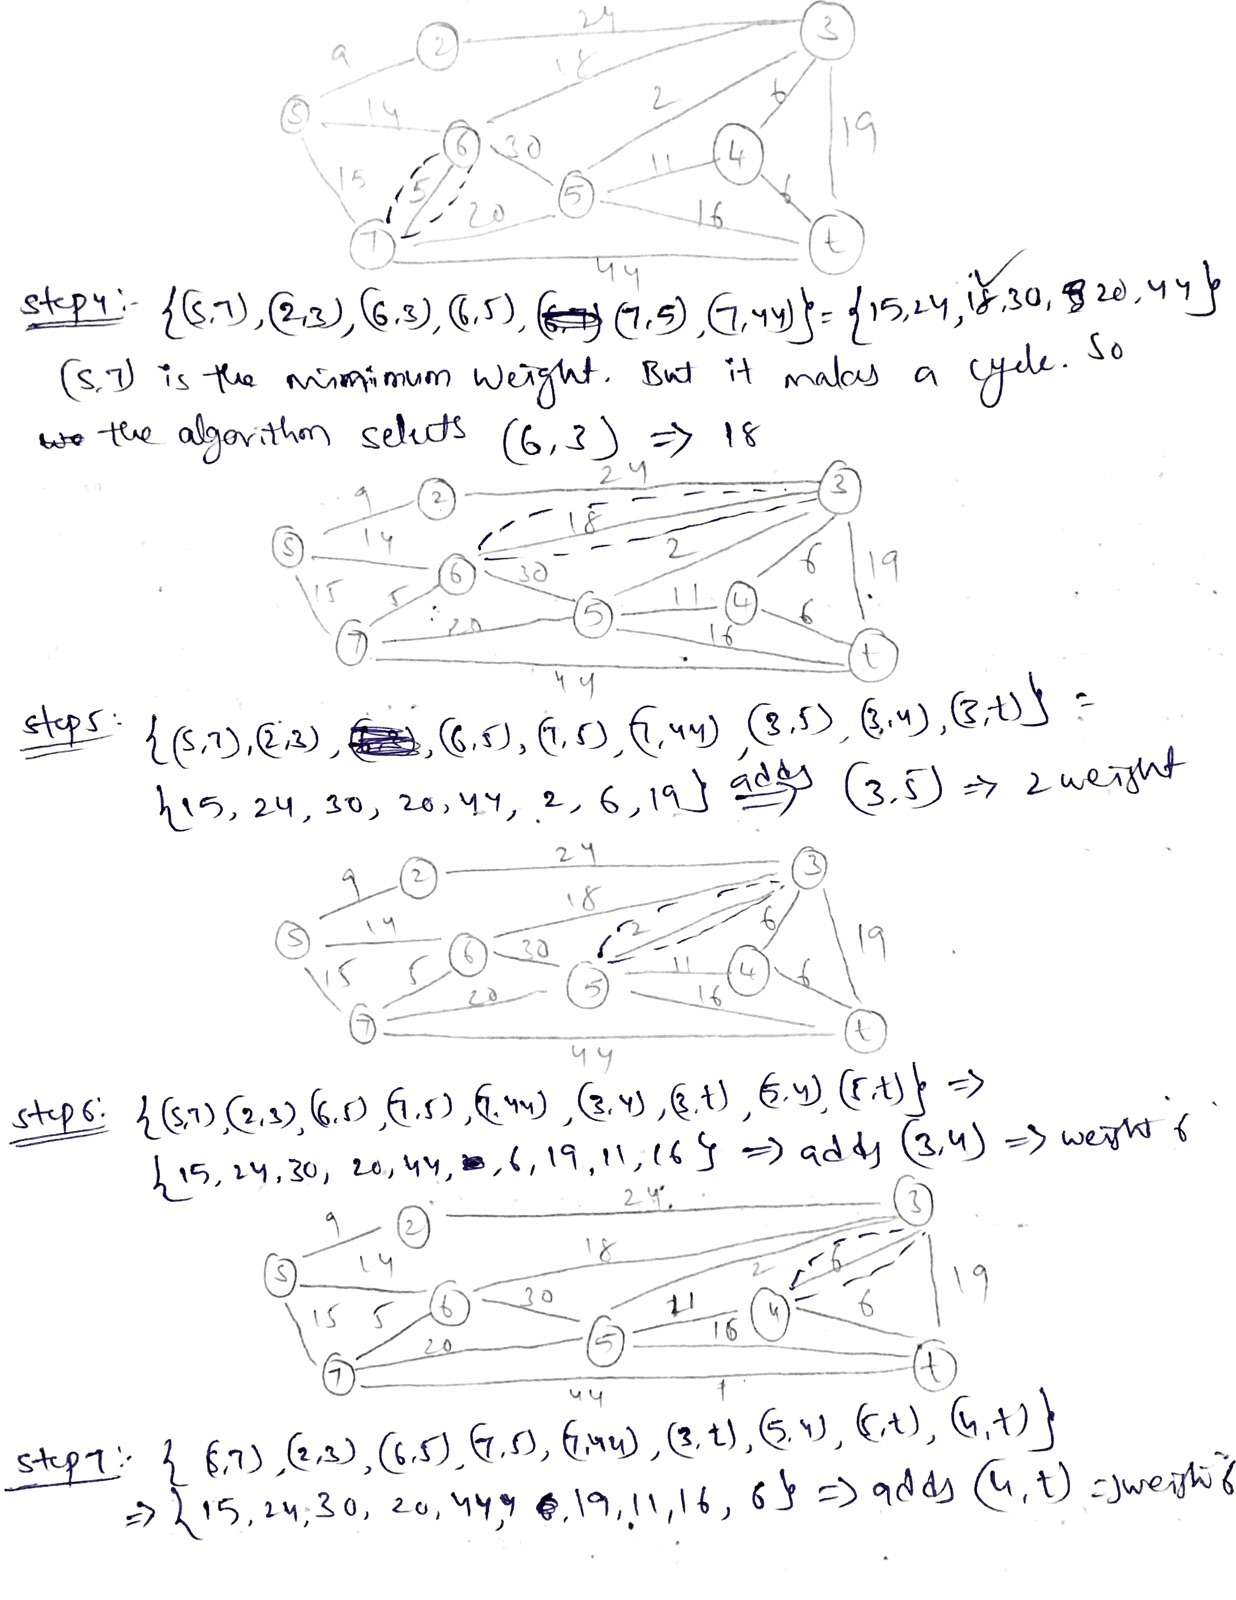 24
9 2 3
18
S 14 2 6
6 30 4 19
15 5 11 6
5
20 16
7 t
44
step4:- {(S,7),(2,3),(6,3),(6,5), (7,5),(7,44)} = {15,24,18,30, 20,44}
(S,7) is the minimum weight. But it makes a cycle. So
the algorithm selects (6,3) => 18
24
9 2 3
18
S 14 2 6
6 30 4 19
15 5 11 6
5
20 16
7 t
44
step5: {(S,7),(2,3), ,(6,5),(7,5),(7,44),(3,5),(3,4),(3,t)} =
{15, 24, 30, 20, 44, 2, 6, 19} adds => (3,5) => 2 weight
24
9 2 3
18
S 14 2 6
6 30 4 19
15 5 11 6
5
20 16
7 t
44
step6: {(S,7),(2,3),(6,5),(7,5),(7,44),(3,4),(3,t),(5,4),(5,t)} =>
{15, 24, 30, 20, 44, , 6, 19, 11, 16} => adds (3,4) => weight 6
24
9 2 3
18
S 14 2 6
6 30 4 19
15 5 11 6
5 16
20
7 t
44
step7:- {(S,7),(2,3),(6,5),(7,5),(7,44),(3,t),(5,4),(5,t),(4,t)}
=> {15, 24, 30, 20, 44, 19, 11, 16, 6} => adds (4,t) => weight 6